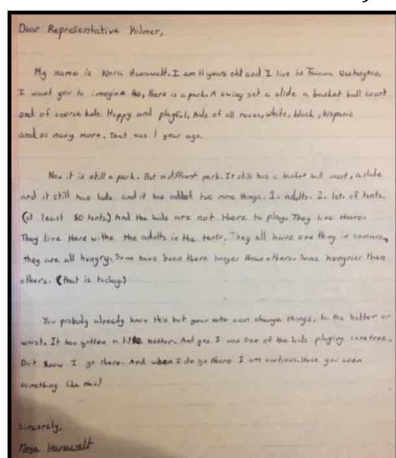 Dear Representative Kilmer,
My name is Nora Hanawalt. I am 11 years old and I live in Tacoma Washington.
I want you to imagine this, there is a park. A swing set a slide a basket ball court
and of coarse kids. Happy and playful, kids of all races, white, black, hispanic
and so many more. That was 1 year ago.
Now it is still a park. But a different park. It still has a basket ball court, a slide
and it still has kids and it has added two more things. 1. adults. 2. lots of tents.
(at least 50 tents) And the kids are not there to play. They live there.
They live there with the adults in the tents. They all have one thing in common,
they are all hungry. Some have been there longer than others. Some hungrier than
others. (that is today)
You probably already know this but your vote can change things, to the better or
worst. It has gotten a little better. And yes I was one of the kids playing carefree.
But know I go there. And when I do go there I am cautious. Have you seen
something like this?
Sincerely,
Nora Hanawalt